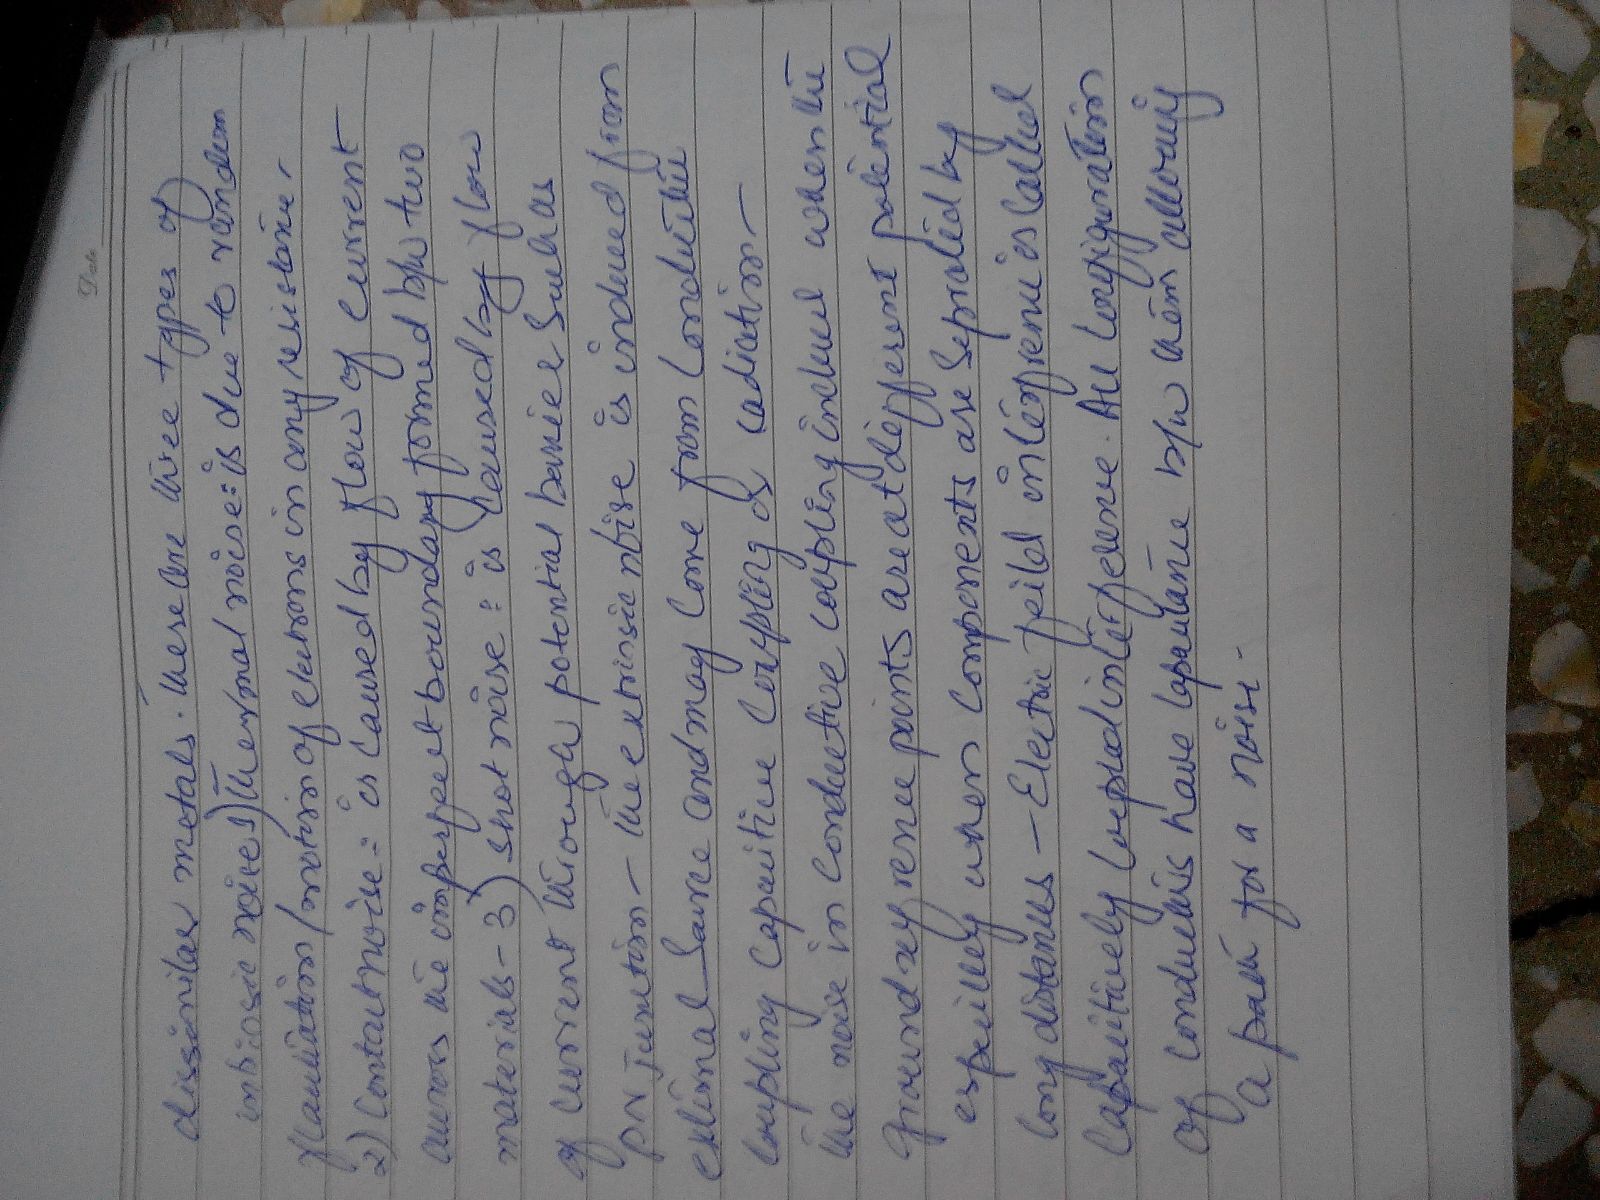 Date
dissimilar metals. There are three types of
intrinsic noise 1) Thermal noise: is due to random
flautiation/motion of electrons in any resistance.
2) Contact noise: is caused by flow of current
across the imperfect boundary formed b/w two
materials - 3) shot noise: is caused by flow
of current through potential barrier such as
PN junction - The extrinsic noise is induced from
external source and may come from conductive
coupling capacitive coupling or radiation -
The noise in conductive coupling induced when the
ground refrence points are at different potential
especilley when components are seprated by
long distances - Electric feild interfrence is called
Capacitively coupled interference. All configuration
of conductors have capacitance b/w them allowing
a path for a noise -